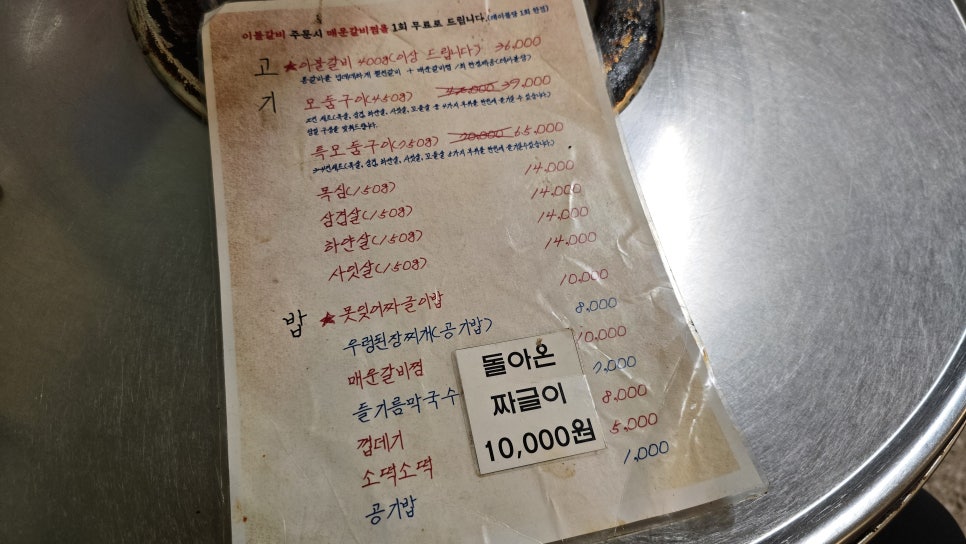 이불갈비 주문시 매운갈비찜을 1회 무료로 드립니다.(테이블당 1회 한정)
고기
★이불갈비 400g(이상 드립니다) 36,000
모둠구이(450g) 42,000 39,000
특모둠구이(750g) 70,000 65,000
목심(150g) 14,000
삼겹살(150g) 14,000
하얀살(150g) 14,000
사잇살(150g) 14,000
밥
★못잊어짜글이밥 10,000
우렁된장찌개(공기밥) 8,000
매운갈비찜 10,000
들기름막국수 7,000
껍데기 8,000
소떡소떡 5,000
공기밥 1,000
돌아온
짜글이
10,000원